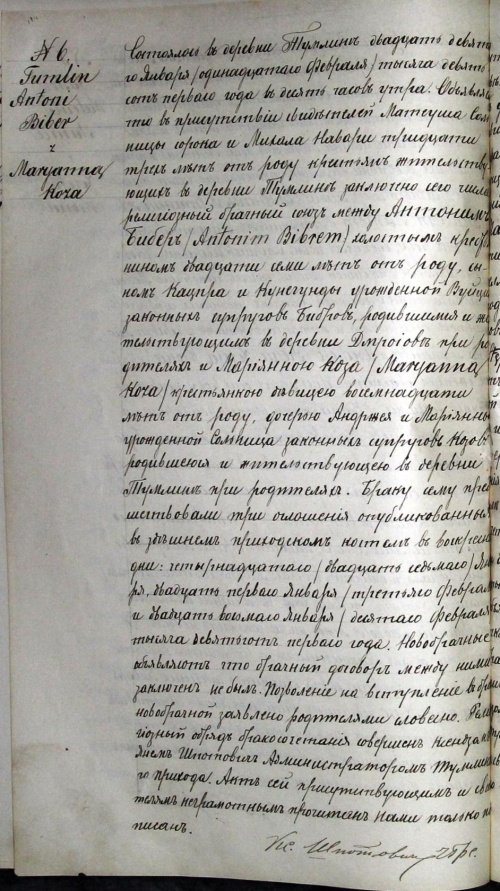 № 6.
Tumlin
Antoni
Biber
z
Maryanna
Koza
Состоялось въ деревни Тумлинъ двадцать девята
го Января /одинадцатаго Февраля/ тысяча девять
сотъ перваго года въ десять часовъ утра. Объявляемъ
что въ присутствіи свидѣтелей Матеуша Соль
ницы сорока и Михала тридцати
трехъ лѣтъ отъ роду крестьянъ жительству
ющихъ въ деревни Тумлинъ заключено сего числа
религіозный брачный союзъ между Антонимъ
Биберъ /Antonim Bibrem/ холостымъ кресть
ниномъ двадцати семи лѣтъ отъ роду, сы-
номъ Кацпра и Кунегунды урожденной
законныхъ супруговъ Бибровъ, родившимся и жи
тельствующимъ въ деревни при ро
дителяхъ и Маріянною Коза /Maryanna
Koza/ крестьянкою дѣвицею восемнадцати
лѣтъ отъ роду, дочерью Андржея и Маріянны
урожденной Сольница законныхъ супруговъ Козовъ
родившеюся и жительствующею въ деревни
Тумлинъ при родителяхъ. Браку сему пред
шествовали три оглошенія опубликованныя
въ здѣшнемъ приходскомъ костелѣ въ воскресн
дни: четырнадцатаго /двадцать седьмаго/ Янва
ря, двадцать перваго Января /третьяго Февраля/
и двадцать восьмаго Января /десятаго Февраля/
тысяча девятьсотъ перваго года. Новобрачные
объявляютъ что брачный договоръ между ними
заключенъ не былъ. Позволеніе на вступленіе въ бракъ
новобрачной заявлено родителями словесно. Рели
гіозный обрядъ бракосочетанія совершенъ Ксендзомъ
Яномъ Шпотовичъ Администраторомъ Тумлинска
го прихода. Актъ сей присутствующимъ и свидѣ
телямъ неграмотнымъ прочитанъ Нами только под
писанъ.
Кс. Шпотовичъ